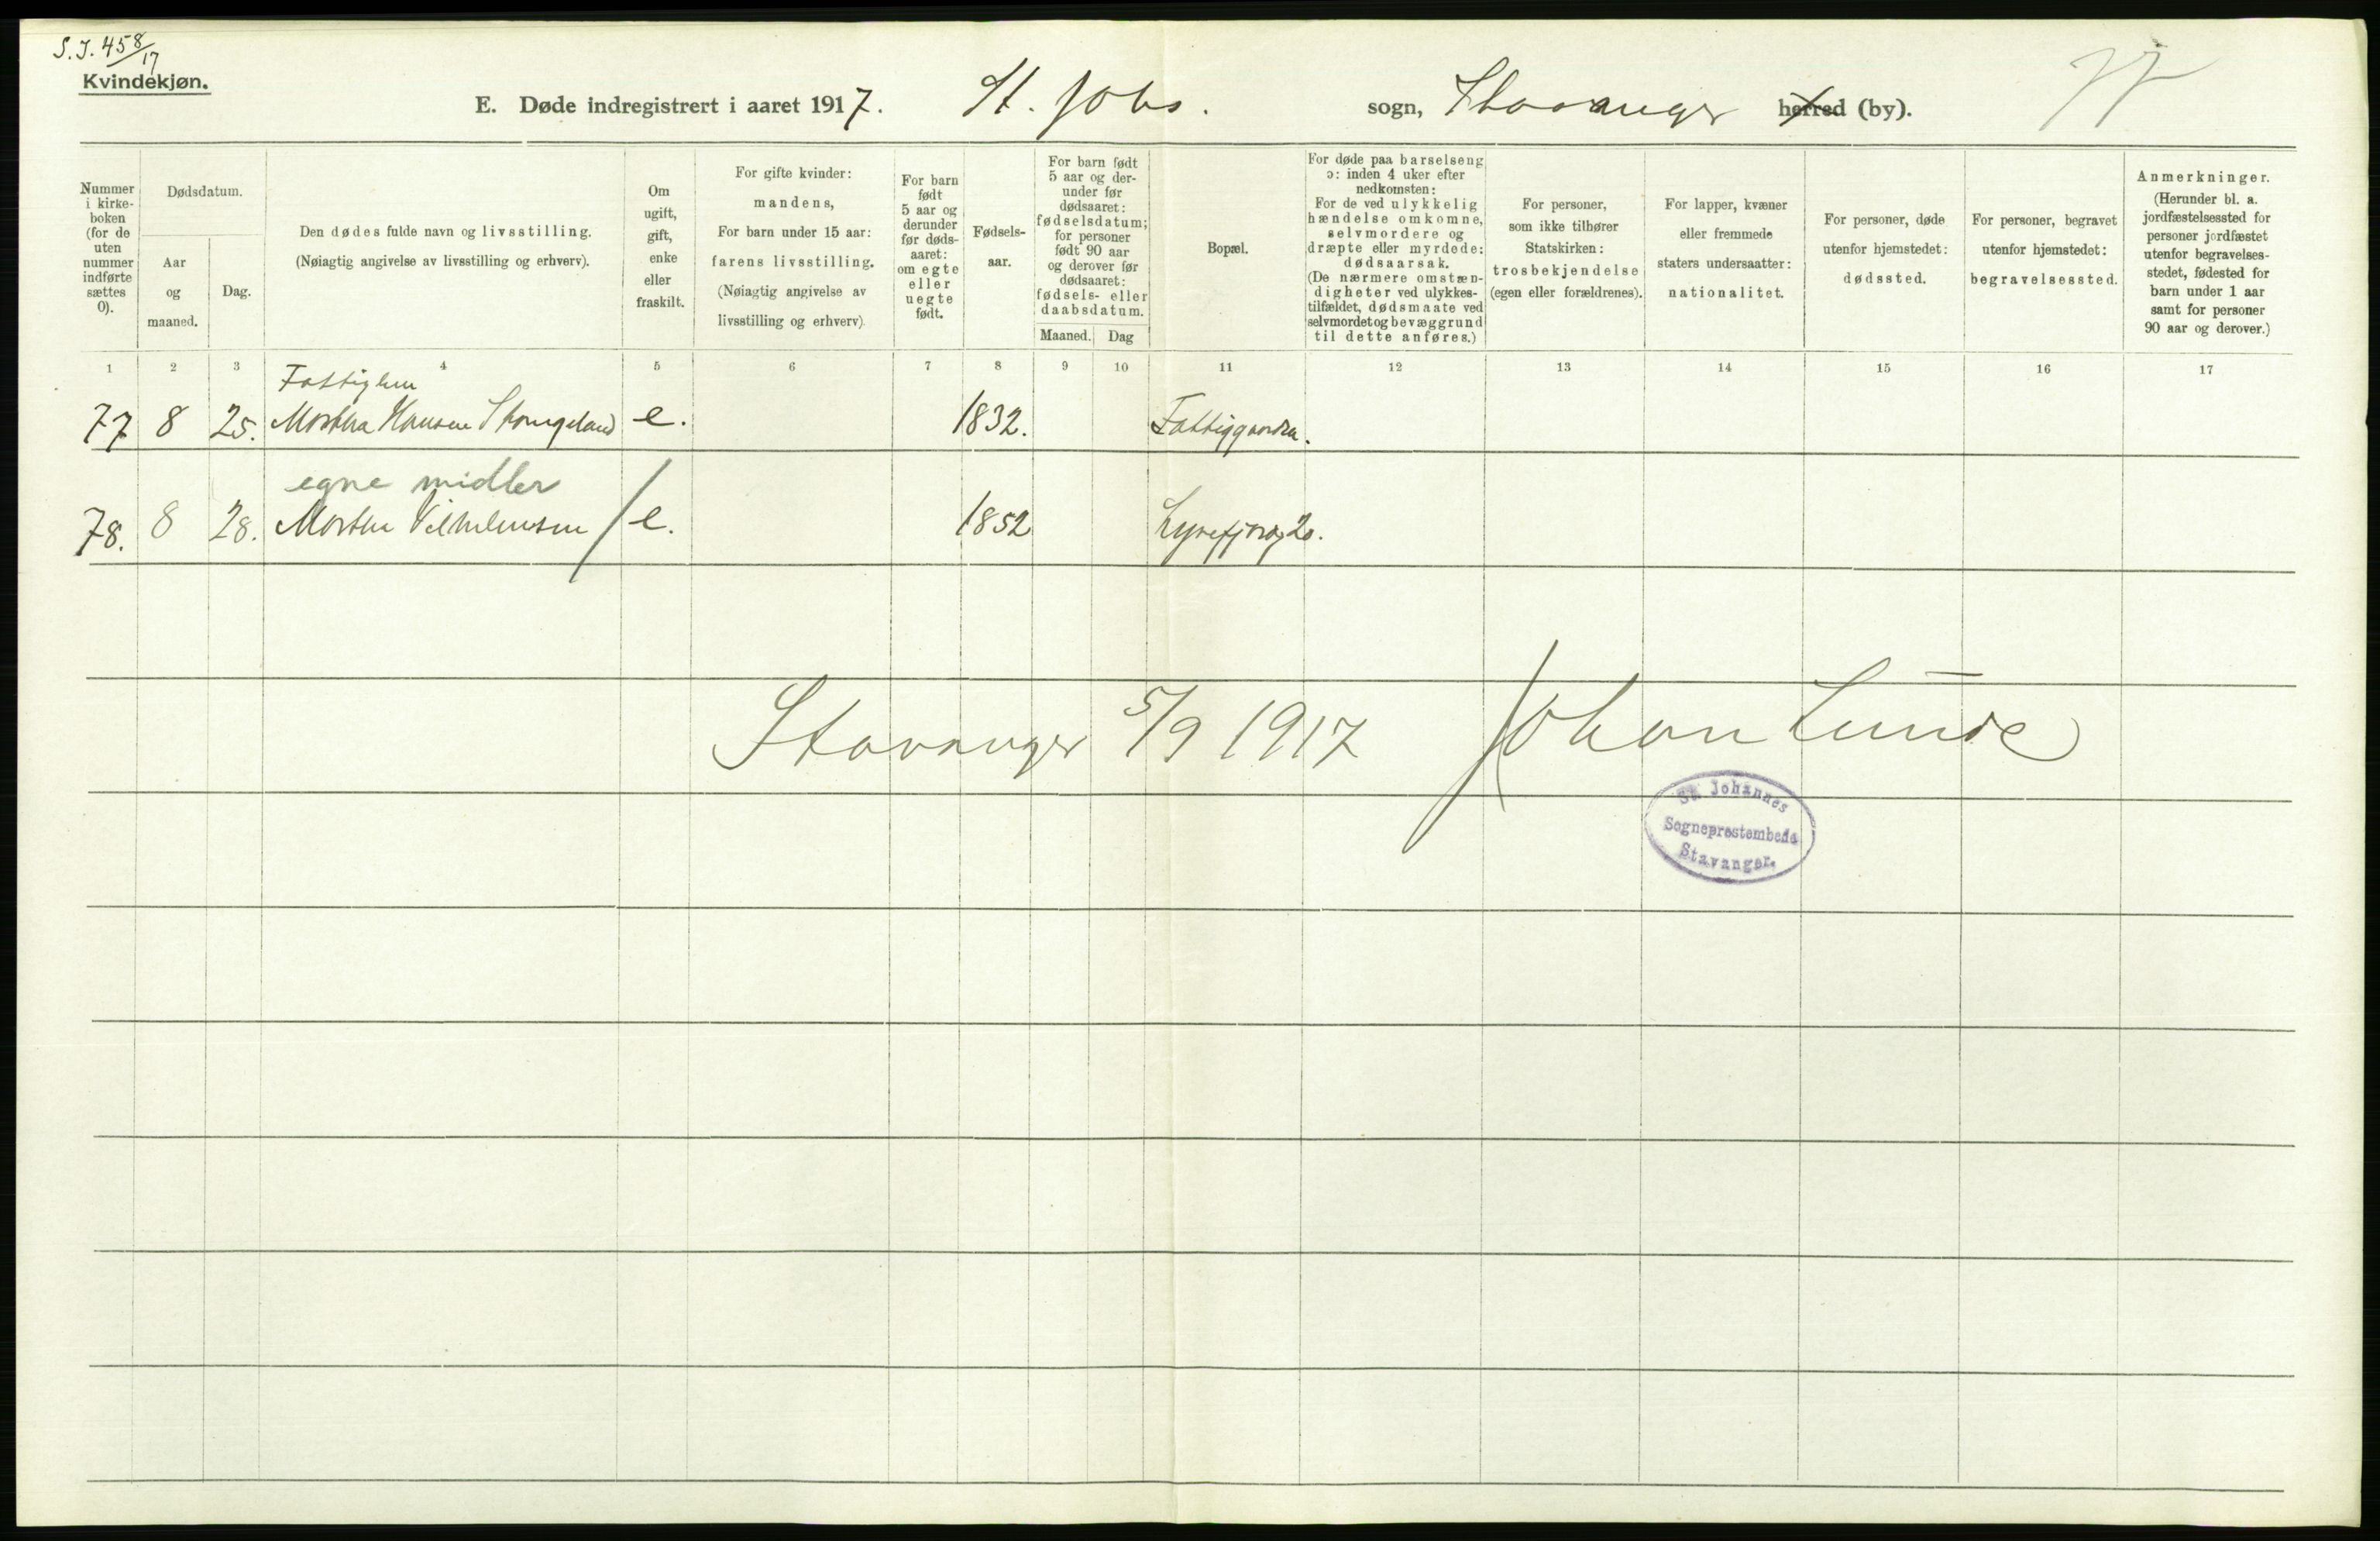 S. J. 458/17
Kvindekjøn.
E. Døde indregistrert i aaret 1917. St. Johs. sogn, Stavanger herred (by).
Nummer i kirkeboken (for de uten nummer indførte sættes 0).
Dødsdatum.
Aar og maaned.
Dag.
Den dødes fulde navn og livsstilling.
(Nøiagtig angivelse av livsstilling og erhverv).
Om ugift, gift, enke eller fraskilt.
For gifte kvinder:
mandens,
For barn under 15 aar:
farens livsstilling.
(Nøiagtig angivelse av
livsstilling og erhverv).
For barn født 5 aar og derunder før dødsaaret: om egte eller uegte født.
Fødselsaar.
For barn født
5 aar og derunder før
dødsaaret:
fødselsdatum;
for personer
født 90 aar
og derover før
dødsaaret:
fødsels- eller
daabsdatum.
Maaned. Dag
Bopæl.
For døde paa barselseng
ɔ: inden 4 uker efter
nedkomsten:
For de ved ulykkelig
hændelse omkomne,
selvmordere og
dræpte eller myrdede:
dødsaarsak.
(De nærmere omstæn-
digheter ved ulykkes-
tilfældet, dødsmaate ved
selvmordet og bevæggrund
til dette anføres.)
For personer,
som ikke tilhører
Statskirken:
trosbekjendelse
(egen eller forældrenes).
For lapper, kvæner
eller fremmede
staters undersaatter:
nationalitet.
For personer, døde
utenfor hjemstedet:
dødssted.
For personer, begravet
utenfor hjemstedet:
begravelsessted.
Anmerkninger.
(Herunder bl. a.
jordfæstelsessted for
personer jordfæstet
utenfor begravelses-
stedet, fødested for
barn under 1 aar
samt for personer
90 aar og derover.)
1 2 3 4 5 6 7 8 9 10 11 12 13 14 15 16 17
Fattiglem
77 8 25. Martha Hansen Stangeland e. 1832. Fattiggaarden.
egne midler
78. 8 28. Marthe Vilhelmsen / e. 1852
Stavanger 5/9 1917 Johan Lunde
St. Johannes
Sogneprestembede
Stavanger.